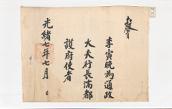 李寅純為通政
大夫行長湍都
護府使者
光緒七年七月　日